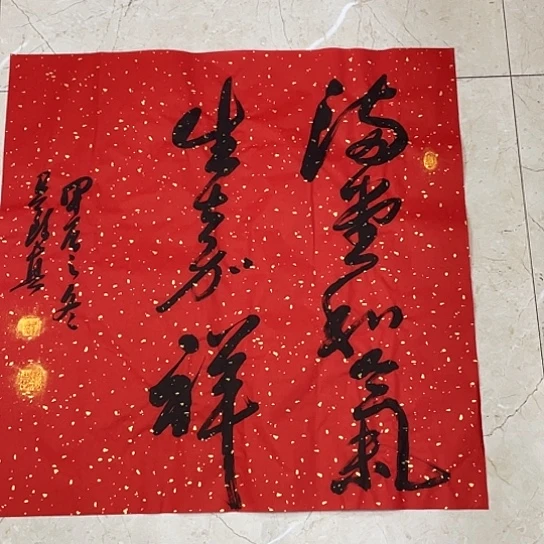 满堂和氣
生嘉祥
甲辰之冬